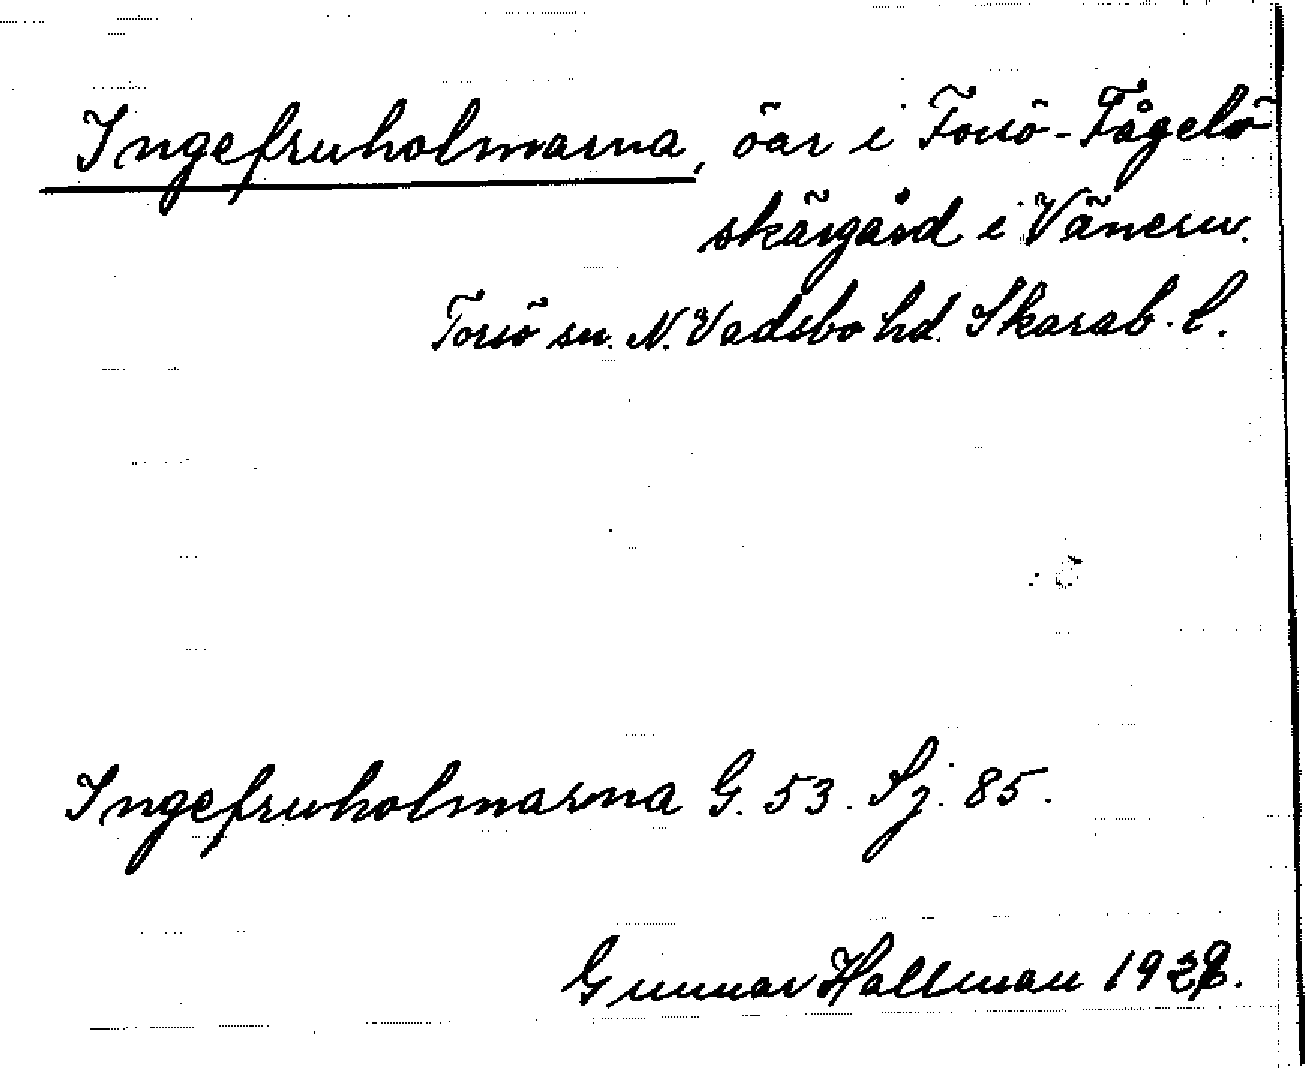 Ingefruholmarna, öar i Torsö-Fågelö
skärgård i Vänern.
Torsö sn. N. Vadsbo hd. Skarab. l.
Ingefruholmarna G. 53. Sj. 85.
Gunnar Hallman